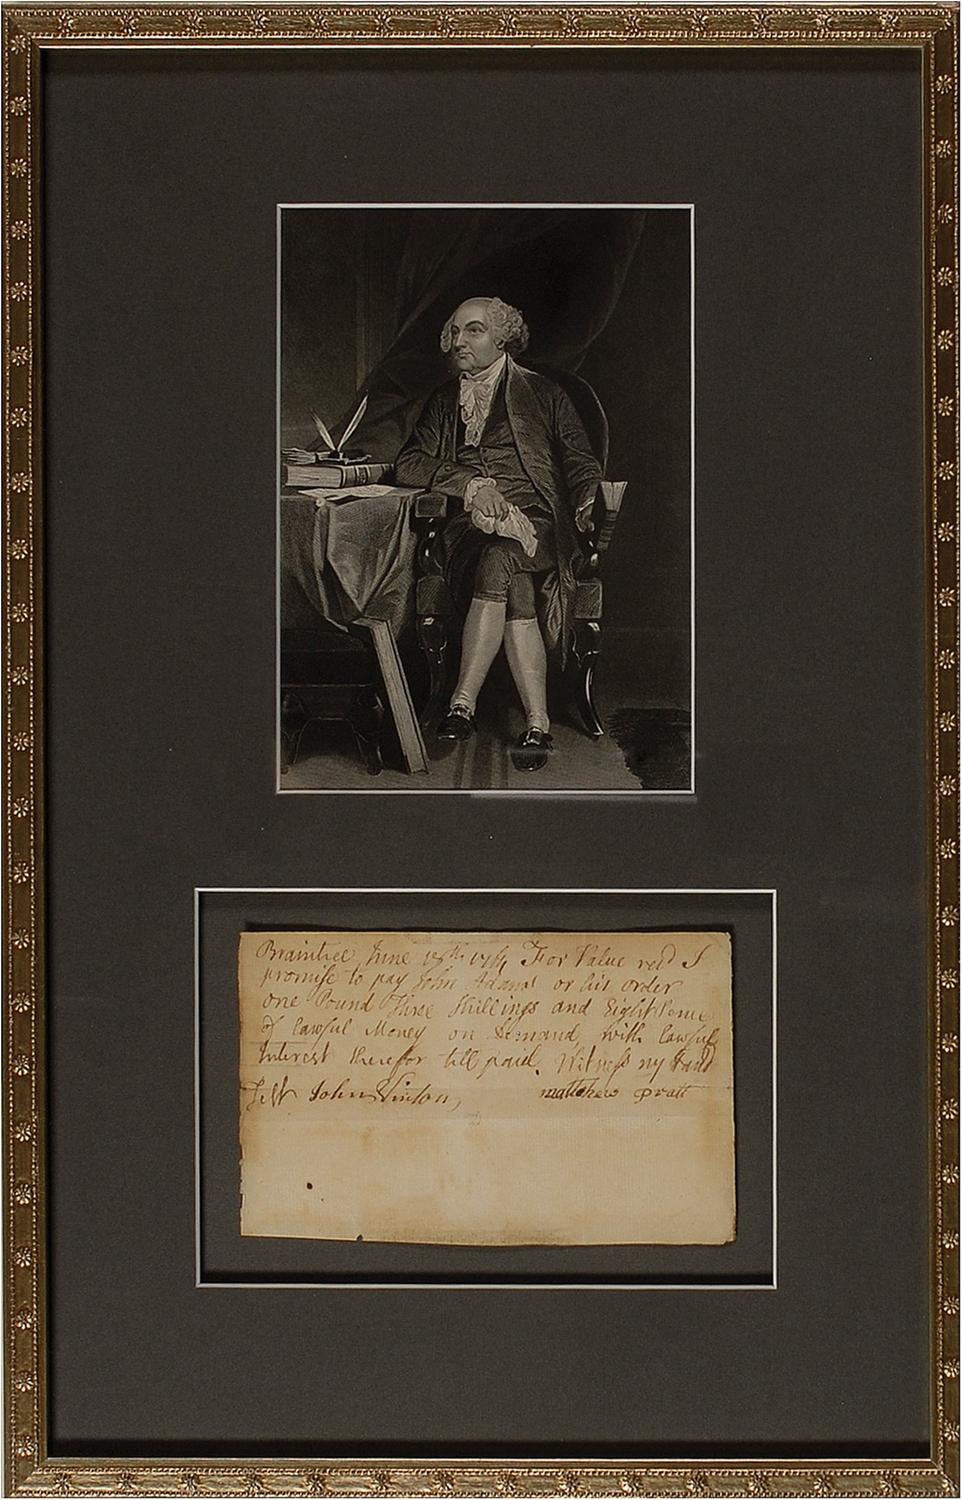 Braintree June For Value recd I
promise to pay John Adams or his order
one Pound Three Shillings and Eight Pence
of lawful Money on Demand, with lawful
Interest therefor till paid. Witness my Hand
Test John Matthew Pratt